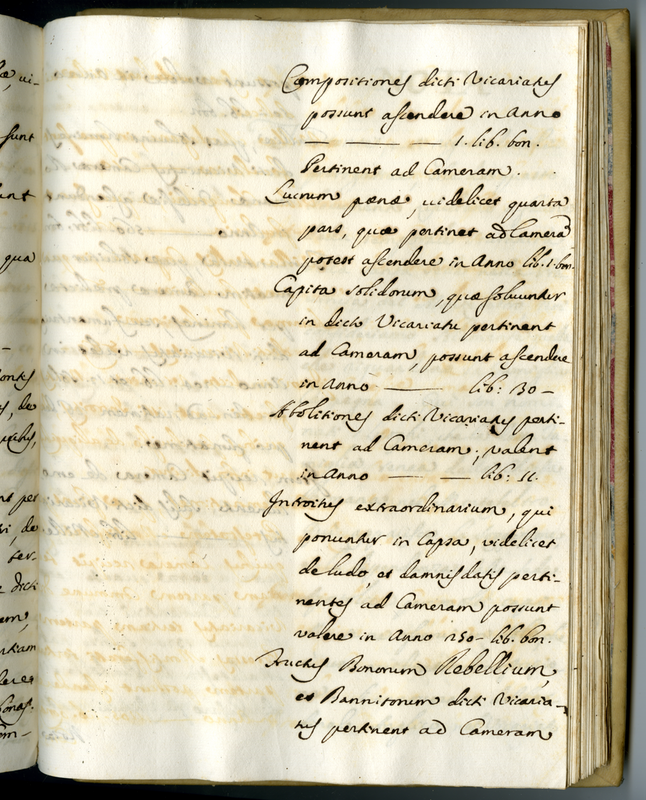 læ, ui-
sunt
unt
qua
fontes
s, de
nt per
ri, de
ter-
dicti
Compositiones dicti Vicariatus
possunt ascendere in Anno
— — — — 1. lib. bon.
Pertinent ad Cameram.
Lucrum pœnæ, uidelicet quarta
pars, quæ pertinet ad Camerã
potest ascendere in Anno lib. 1. bon.
Capita solidorum, quæ soluuntur
in dicto Vicariatu pertinent
ad Cameram, possunt ascendere
in Anno — lib: 130 —
Abolitiones dicti Vicariatus perti-
nent ad Cameram, valent
in Anno — — lib: 11.
Introitus extraordinarium, qui
ponuntur in Capsa, videlicet
de ludo, et damnis datis perti-
nentes ad Cameram possunt
valere in Anno 250 — lib. bon.
Fructus Bonorum Rebellium,
et Bannitorum dicti Vicaria-
tus pertinent ad Cameram